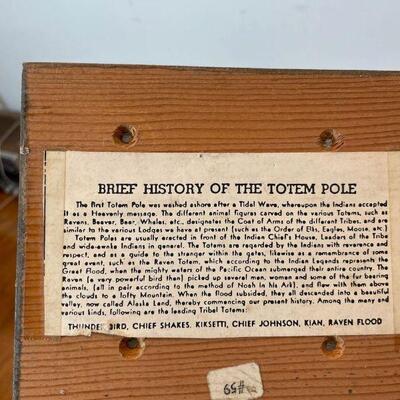 BRIEF HISTORY OF THE TOTEM POLE
The first Totem Pole was washed ashore after a Tidal Wave, whereupon the Indians accepted
it as a Heavenly message. The different animal figures carved on the various Totems, such as
Ravens, Beaver, Bear, Whales, etc., designates the Coat of Arms of the different Tribes, and are
similar to the various Lodges we have at present (such as the Order of Elks, Eagles, Moose, etc.)
Totem Poles are usually erected in front of the Indian Chief's House, Leaders of the Tribe
and wide-awake Indians in general. The Totems are regarded by the Indians with reverence and
respect, and as a guide to the stranger within the gates, likewise as a remembrance of some
great event, such as the Raven Totem, which according to the Indian Legends represents the
Great Flood, when the mighty waters of the Pacific Ocean submerged their entire country. The
Raven (a very powerful bird then) picked up several men, women and some of the fur bearing
animals, (all in pair according to the method of Noah in his Ark), and flew with them above
the clouds to a lofty Mountain. When the flood subsided, they all descended into a beautiful
valley, now called Alaska Land, thereby commencing our present history. Among the many and
various kinds, following are the leading Tribel Totems:
THUNDER BIRD, CHIEF SHAKES, KIKSETTI, CHIEF JOHNSON, KIAN, RAVEN FLOOD
#59